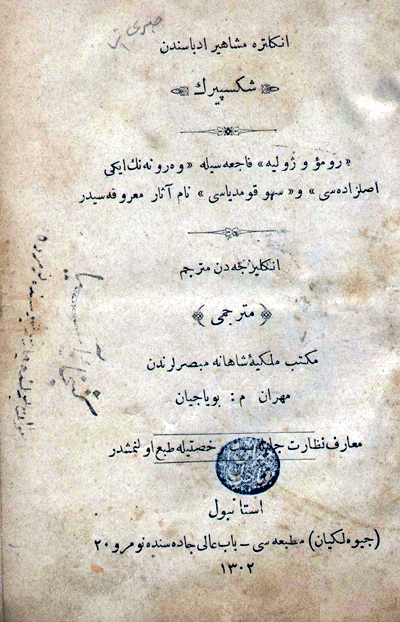 انكلتره مشاهير ادباسندن
شكسپيرك
«رومؤ و ژوليه» فاجعه سيله «وه رونه نك ايكى
اصلزاده سى» و «سهو قومدياسى» نام آثار معروفه سيدر
انكليزجه دن مترجم
﴿مترجمى﴾
مكتب ملكيۀ شاهانه مبصرلرندن
مهران م: بوياجيان
معارف نظارت جليله سنك رخصتيله طبع اولنمشدر
استانبول
(جيوه لكيان) مطبعه سى – باب عالى جاده سنده نومرو ٢٠
١٣٠٢